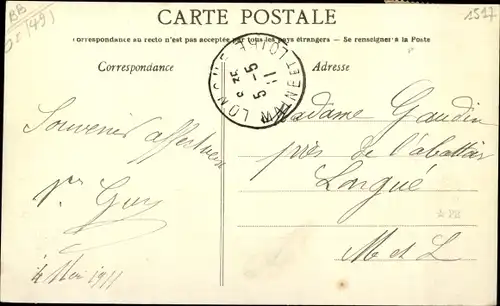 BB
(49)
1517
CARTE POSTALE
La Correspondance au recto n'est pas acceptée par tous les pays étrangers. — Se renseigner à la Poste
Correspondance
Adresse
LONGUÉ
MAINE ET LOIRE
5 - 5
11
Souvenir affectueux
Guy
4 Mai 1911
Madame Gaudin
près de l'abattoir
Longué
M et L